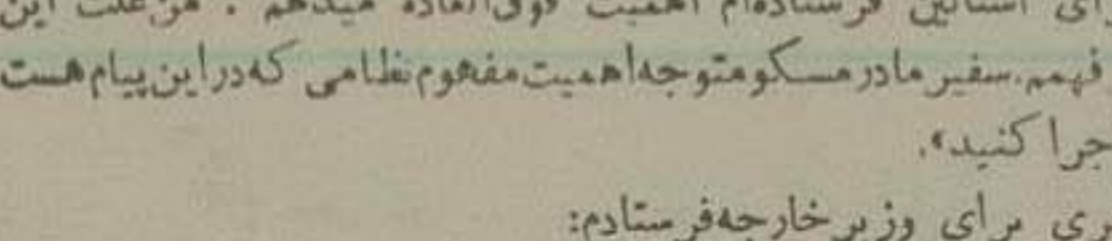 برای استالین فرستاده‌ام اهمیت فوق‌العاده میدهم . من علت این
فهمم.سفیر مادر مسکو متوجه اهمیت مفهوم نظامی که در این پیام هست
جرا کنید».
ری برای وزیر خارجه فرستادم: